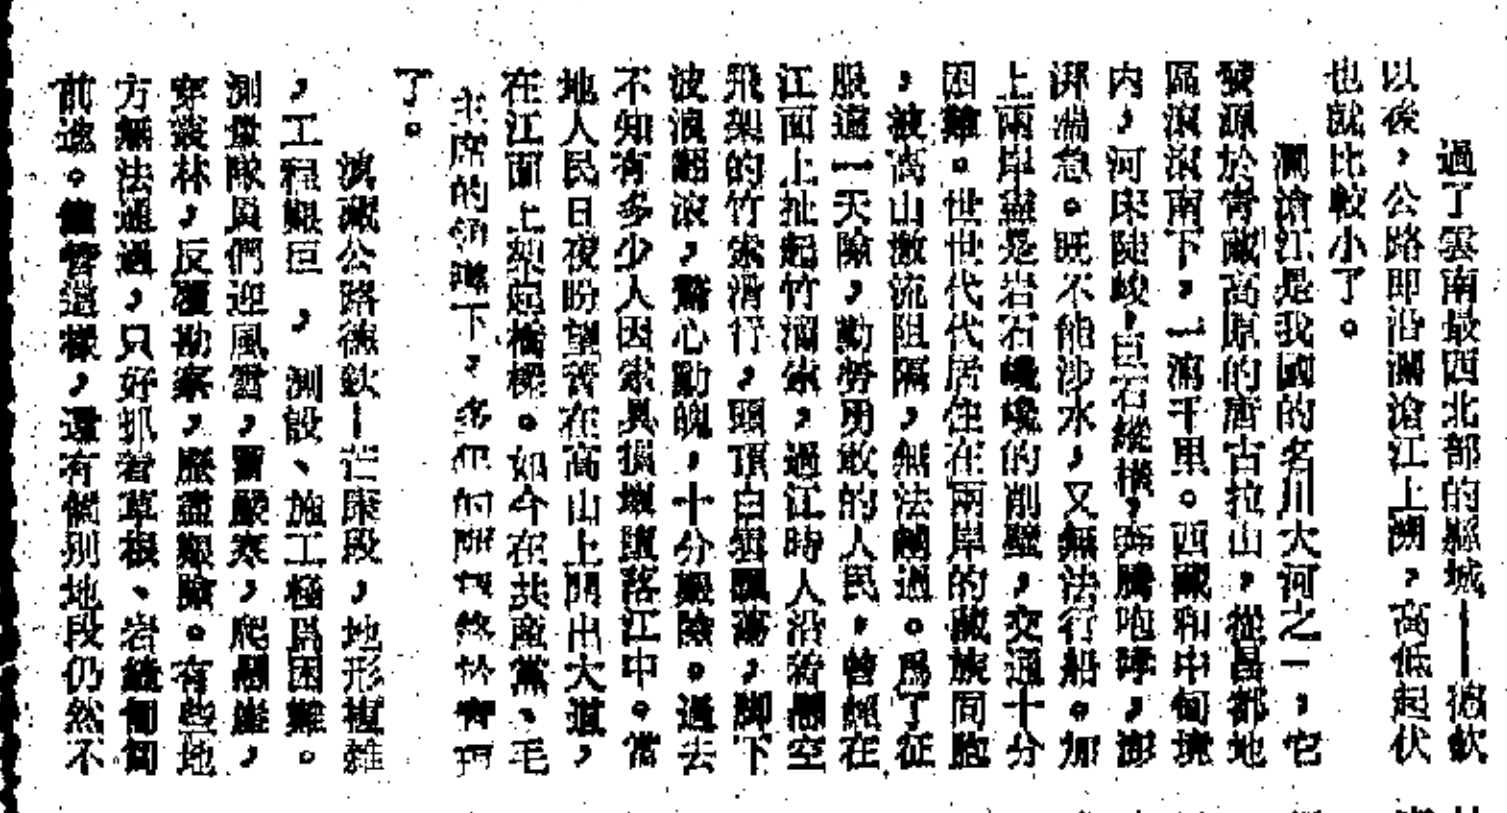 過了雲南最西北部的縣城——德欽
以後，公路即沿瀾滄江上溯，高低起伏
也就比較小了。
瀾滄江是我國的名川大河之一，它
發源於青藏高原的唐古拉山，從昌都地
區滾滾南下，一瀉千里。西藏和中甸境
內，河床陡峻，巨石縱橫，奔騰咆哮，澎
湃湍急。既不能涉水，又無法行船。加
上兩岸盡是岩石巉巉的削壁，交通十分
困難。世世代代居住在兩岸的藏族同胞
，被高山激流阻隔，無法越過。爲了征
服這一天險，勤勞勇敢的人民，曾經在
江面上扯起竹溜索，過江時人沿着懸空
飛架的竹索滑行，頭頂白雲飄蕩，脚下
波浪翻滾，驚心動魄，十分艱險。過去
不知有多少人因索具損壞墮落江中。當
地人民日夜盼望着在高山上開出大道，
在江面上架起橋樑。如今在共產黨、毛
主席的領導下，多年的
了。
滇藏公路德欽—芒康段，地形複雜
，工程艱巨，測設、施工極爲困難。
測量隊員們迎風雪，冒嚴寒，爬懸崖，
穿叢林，反覆勘察，歷盡艱險。有些地
方無法通過，只好抓着草根、岩縫匍匐
前進。儘管這樣，還有個別地段仍然不